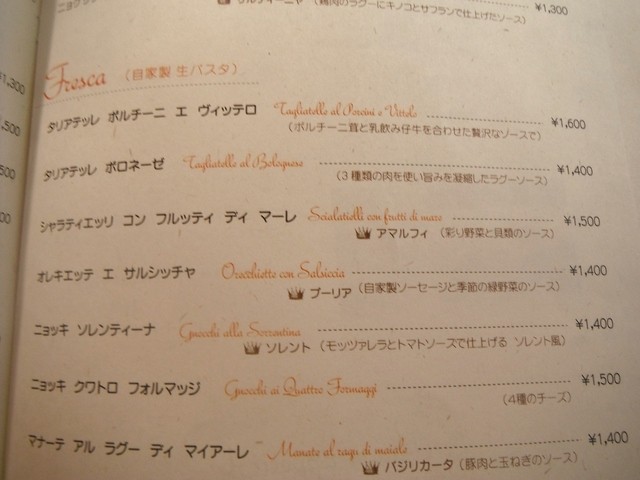 サルディーニャ (鶏肉のラグーにキノコとサフランで仕上げたソース) ¥1,300
Fresca (自家製 生パスタ)
タリアテッレ ポルチーニ エ ヴィッテロ Tagliatelle al Porcini e Vittelo ¥1,600
(ポルチーニ茸と乳飲み仔牛を合わせた贅沢なソースで)
タリアテッレ ボロネーゼ Tagliatelle al Bolognese ¥1,400
(3種類の肉を使い旨みを凝縮したラグーソース)
シャラティエッリ コン フルッティ ディ マーレ Scialatielli con frutti di mare ¥1,500
アマルフィ (彩り野菜と貝類のソース)
オレキエッテ エ サルシッチャ Orecchiette con Salsiccia ¥1,400
プーリア (自家製ソーセージと季節の緑野菜のソース)
ニョッキ ソレンティーナ Gnocchi alla Sorrentina ¥1,400
ソレント (モッツァレラとトマトソースで仕上げる ソレント風)
ニョッキ クワトロ フォルマッジ Gnocchi ai Quattro Formaggi ¥1,500
(4種のチーズ)
マナーテ アル ラグー ディ マイアーレ Manate al ragu di maiale ¥1,400
バジリカータ (豚肉と玉ねぎのソース)